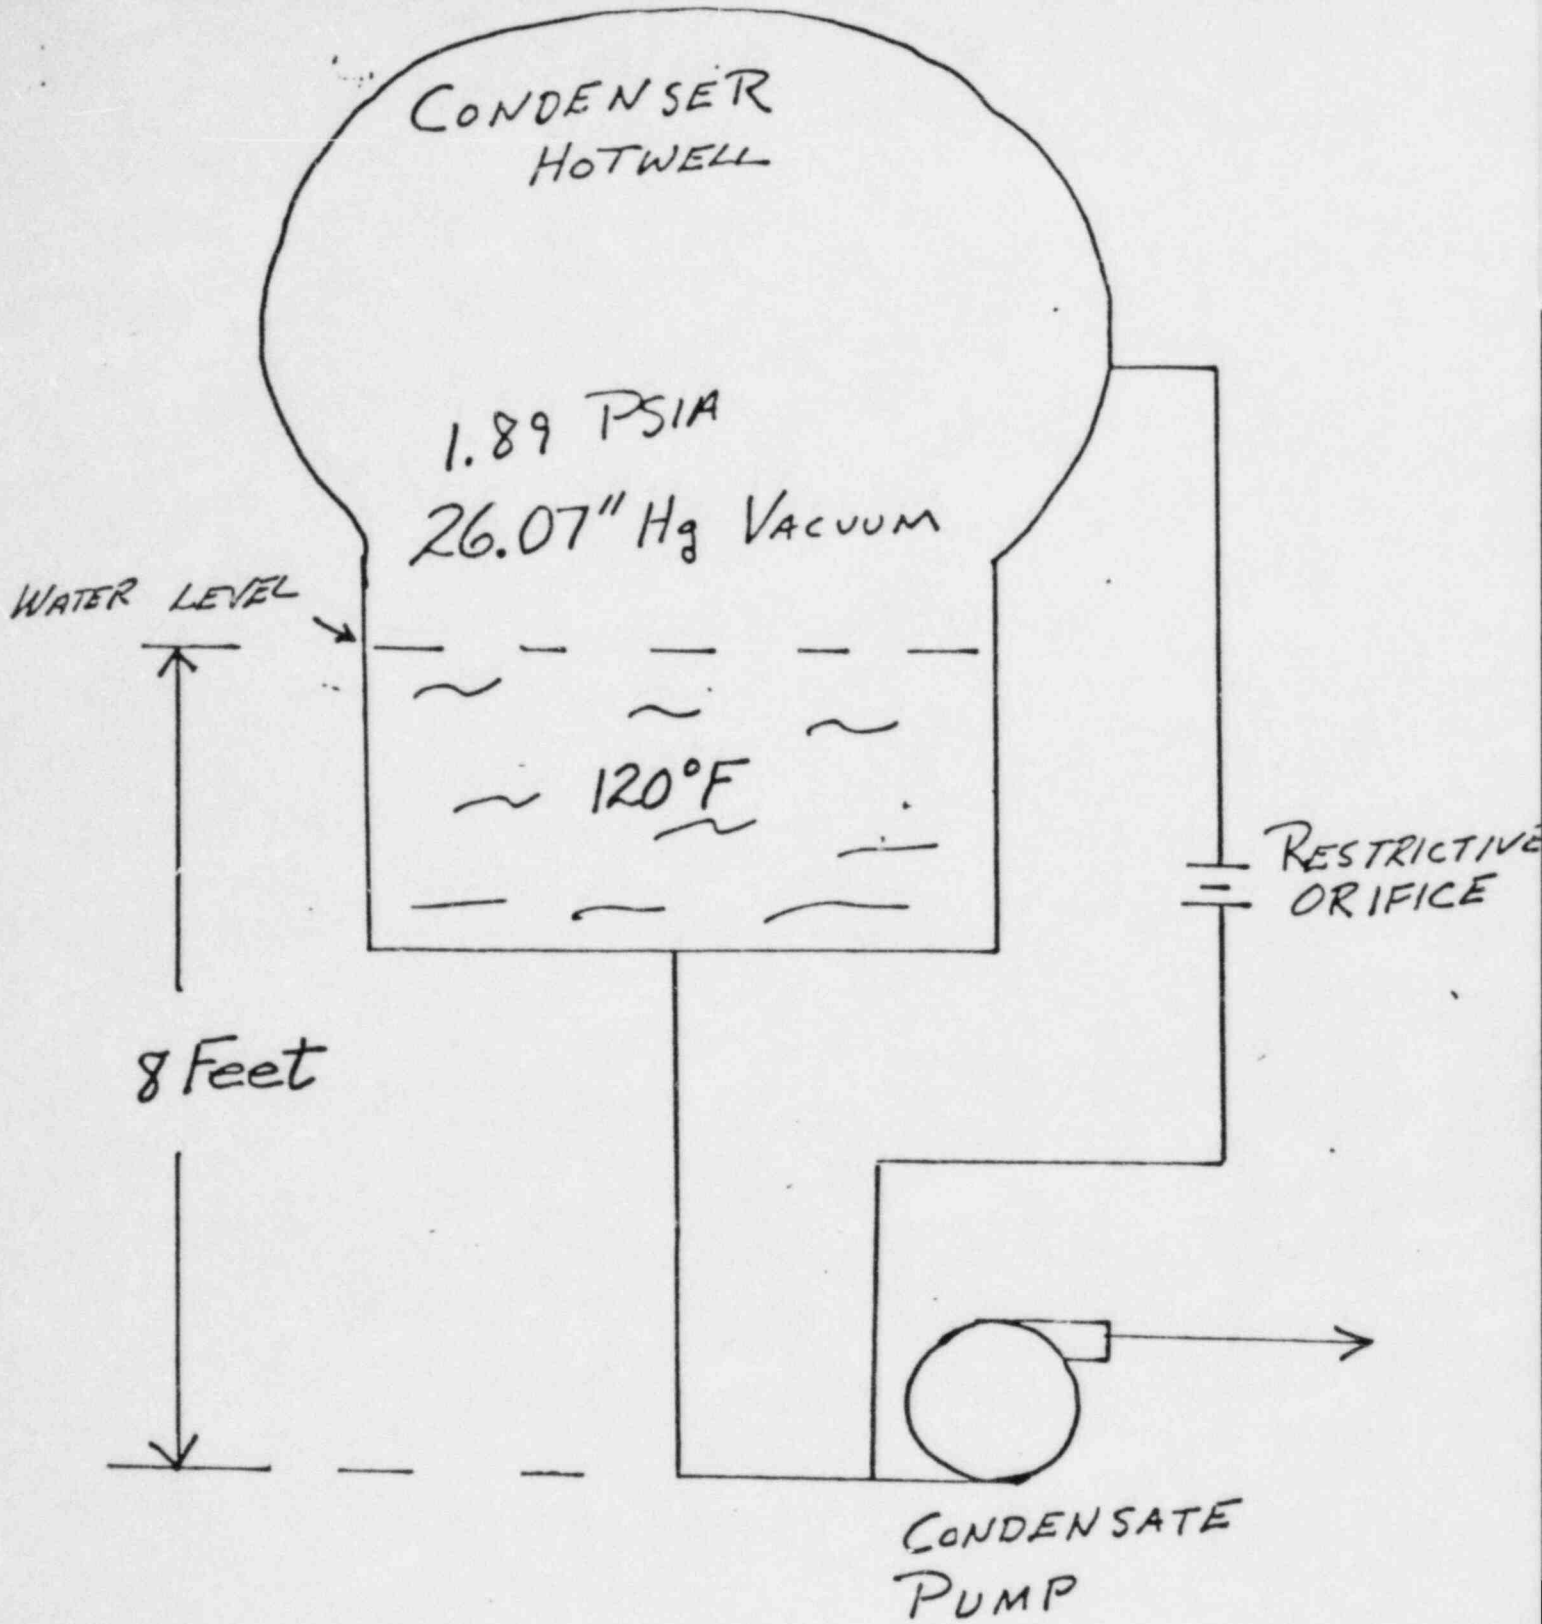 CONDENSER
HOTWELL
1.89 PSIA
26.07" Hg VACUUM
WATER LEVEL
120°F
RESTRICTIVE
ORIFICE
8 Feet
CONDENSATE
PUMP